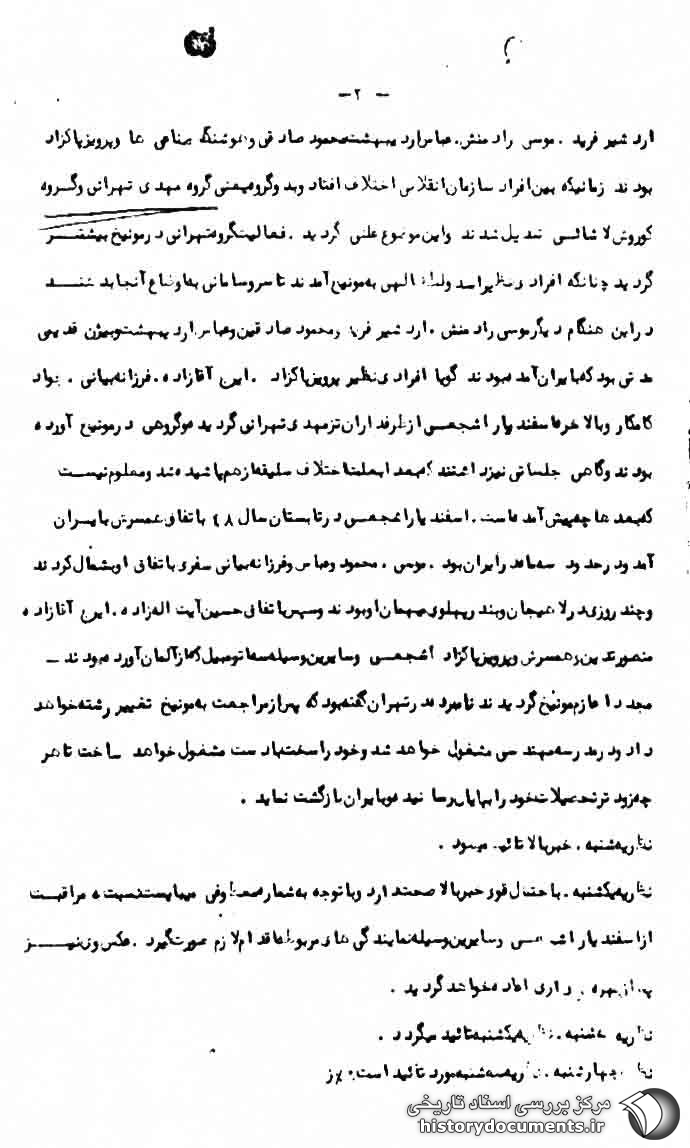 - ۲ -
ارد شیر فرید . موسی راد منش. عباس ارد یبهشت محمود صاد قی وهوشنگ صناعی ها وپرویز پاکزاد
بود ند زمانیکه بین افراد سازمان انقلابی اختلاف افتاد وبد وگروه یعنی گروه مهد ی تهرانی وگروه
کوروش لاشائی تبد یل شد ند واین موضوع علنی گرد ید . فعالیت گروه تهرانی د رمونیخ بیشتر
گرد ید چنانکه افراد ی نظیر اسد ولطف الهی به مونیخ آمد ند تا سروسامانی به اوضاع آنجا بد هند
د راین هنگام د یگر موسی راد منش . ارد شیر فرید ومحمود صاد قی وعباس ارد یبهشت وبیژن قد یمی
مد تی بود که بایران آمد ه بود ند گویا افراد ی نظیر پرویز پاکزاد . امین آقازاد ه . فرزانه بیانی . جواد
کامکار وبالا خره اسفند یار اشجعی از طرفد اران تز مهد ی تهرانی گرد ید ه وگروهی د رمونیخ آورد ه
بود ند وگاهی جلساتی نیز د اشتند که بعد ا بعلت اختلاف سلیقه ازهم پاشید ه شد ومعلوم نیست
که بعد ها چه پیش آمد ه است . اسفند یار اشجعی د ر تابستان سال ۴۸ باتفاق همسرش بایران
آمد ود رحد ود سه ماه د رایران بود . موسی . محمود وعباس وفرزانه بیانی سفری باتفاق اوبشمال کرد ند
وچند روزی د رلا هیجان وبند رپهلوی میهمان اوبود ند وسپس باتفاق حسین آیت اله زاد ه . امین آقازاد ه
منصور تد ین وهمسرش وپرویز پاکزاد اشجعی وسایرین وسیله سه اتومبیل که از آلمان آورد ه بود ند -
مجد د ا عازم مونیخ گرد ید ند نامبرد ه د رتهران گفته بود که پس از مراجعت به مونیخ تغییر رشته خواهد
د اد ود رمد رسه مهند سی مشغول خواهد شد وخود را سخت بد رست مشغول خواهد ساخت تا هر
چه زود تر تحصیلات خود را بپایان رسا نید ه وبایران بازگشت نماید .
نظریه شنبه . خبر بالا تائید میشود .
نظریه یکشنبه . با احتمال قوی خبر بالا صحت د ارد وبا توجه به شعار مصطوفی میبایست نسبت به مراقبت
از اسفند یار اشجعی وسایرین وسیله نمایند گی های مربوطه اقد ام لا زم صورت گیرد . عکس وی نیز
پس از بهره برد اری اعاد ه خواهد گرد ید .
نظریه سه شنبه . نظریه یکشنبه تائید میگرد د .
نظریه چهارشنبه . نظریه سه شنبه مورد تائید است .
مرکز بررسی اسناد تاریخی
historydocuments.ir